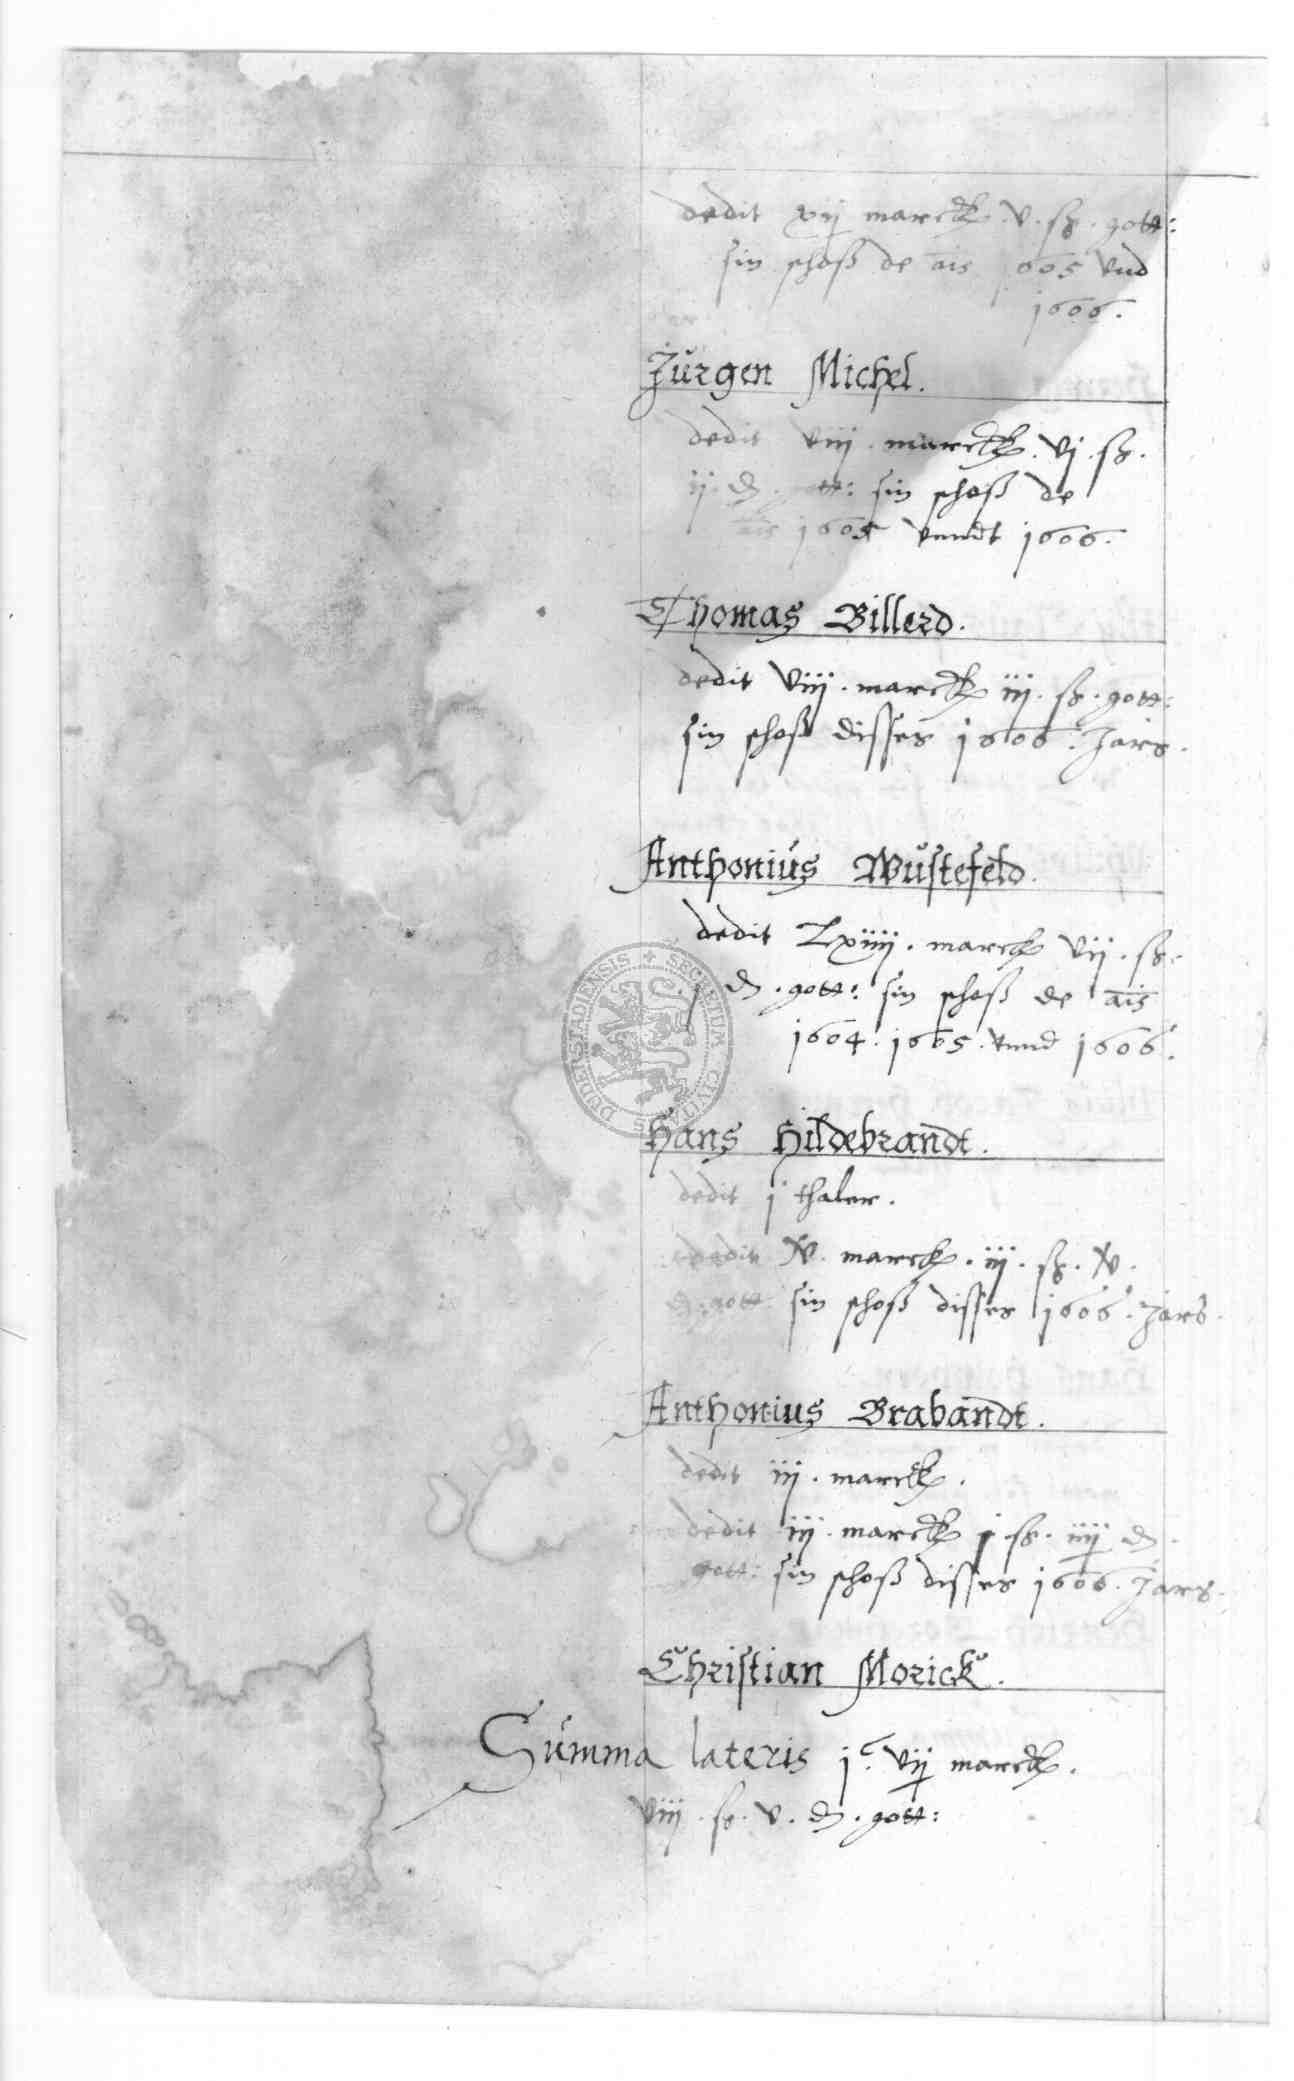 dedit xij marck. v. ß. gott:
sin schoß de ais 1605 vnd
1606.
Jürgen Michel.
dedit viij. marck. vj. ß.
ij. d. gott: sin schoß de
ais 1605 vnndt 1606.
Thomas Billerd.
dedit viij. marck iij. ß. gott:
sin schoß disses 1606. Jars.
Anthoniüs Wüstefeld.
dedit Lxiiij. marck vij. ß.
j d. gott: sin schoß de ais
1604. 1605. vnnd 1606.
SECRETUM CIVITATIS DUDERSTADIENSIS
Hans Hildebrandt.
dedit j thaler.
dedit iv. marck. iij. ß. iv.
d. gott: sin schoß disses 1606. Jars.
Anthonius Brabandt.
dedit iij. marck.
dedit iij. marck j ß. iiij d.
gott: sin schoß disses 1606. Jars.
Christian Morick.
Sümma lateris jc. vij marck.
viij. ß. v. d. gott: